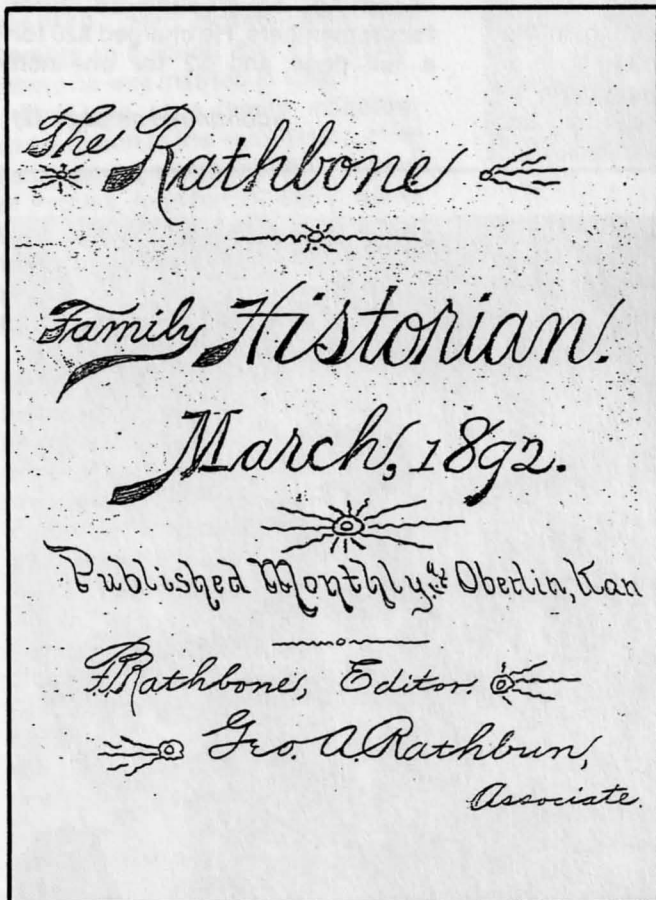 The Rathbone
Family Historian.
March, 1892.
Published Monthly at Oberlin, Kan
F. Rathbone, Editor.
Geo. A. Rathbun,
Associate.